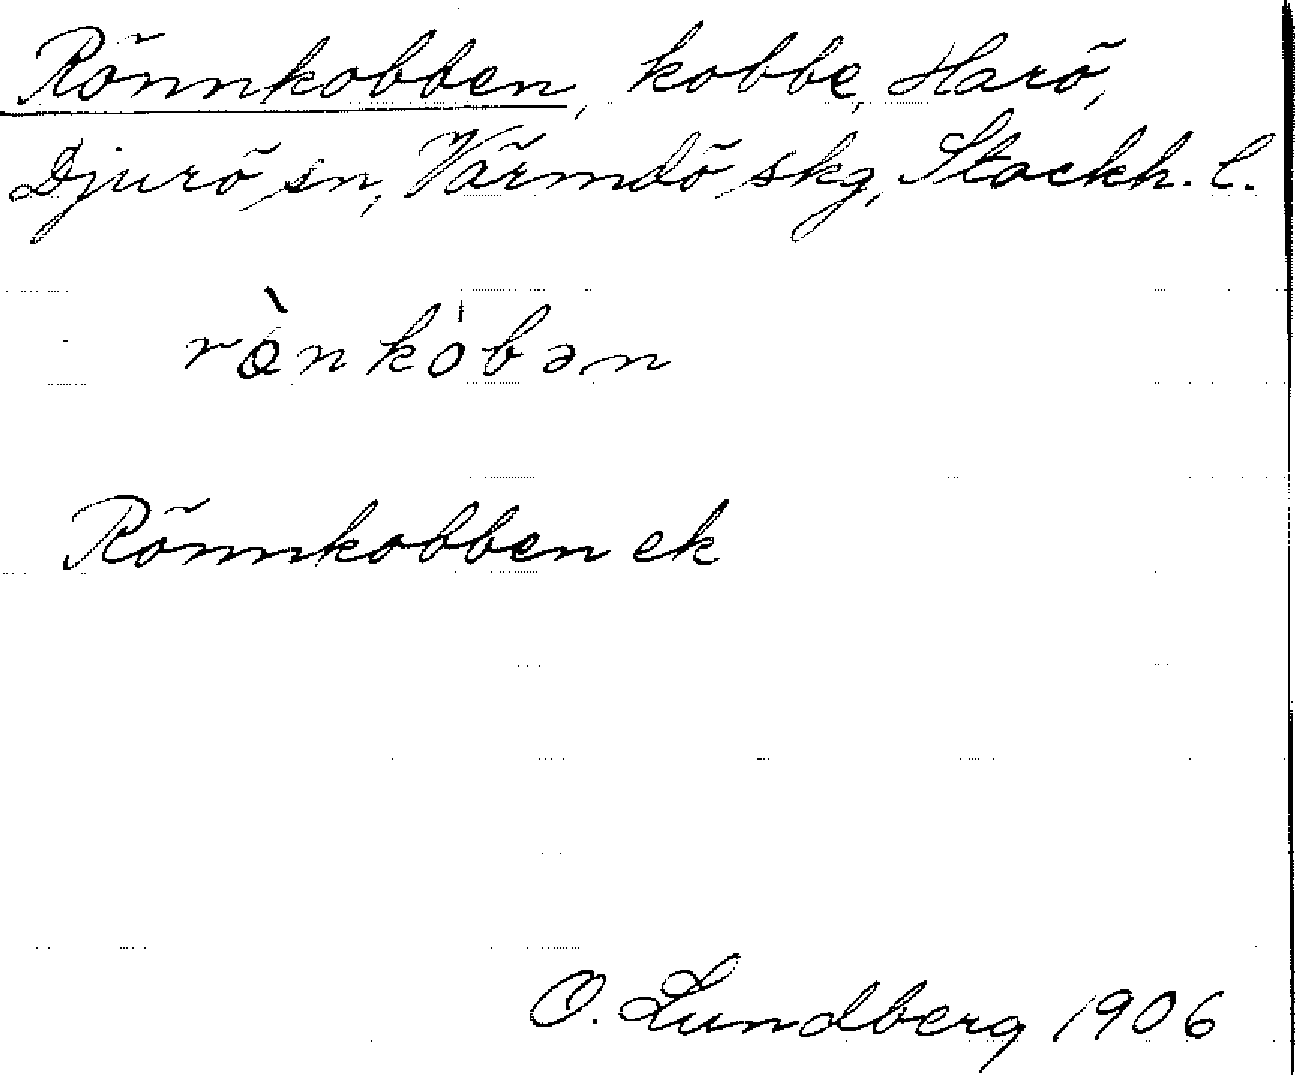 Rönnkobben, kobbe, Harö,
Djurö sn, Värmdö skg, Stockh. l.
rǫ̀nkȯbən
Rönnkobben ek
O. Lundberg 1906